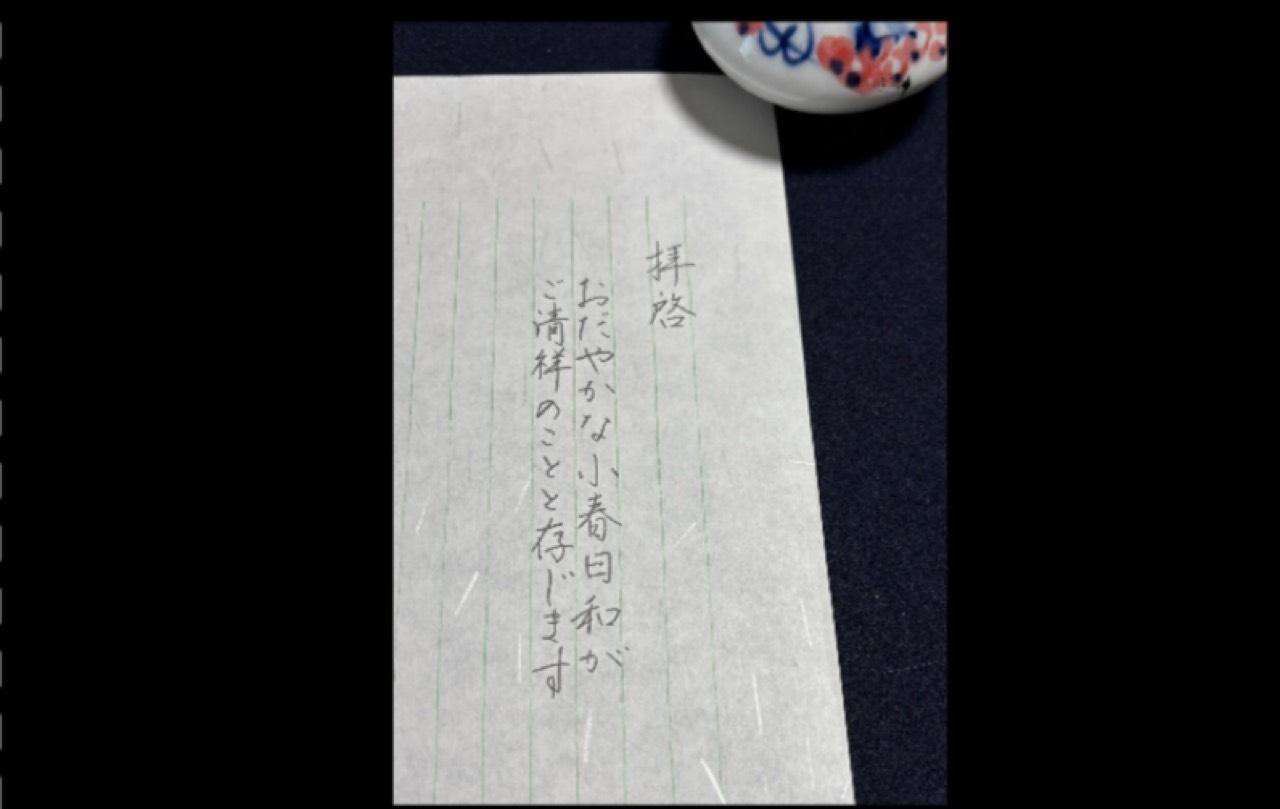 拝啓
おだやかな小春日和が
ご清祥のことと存じます